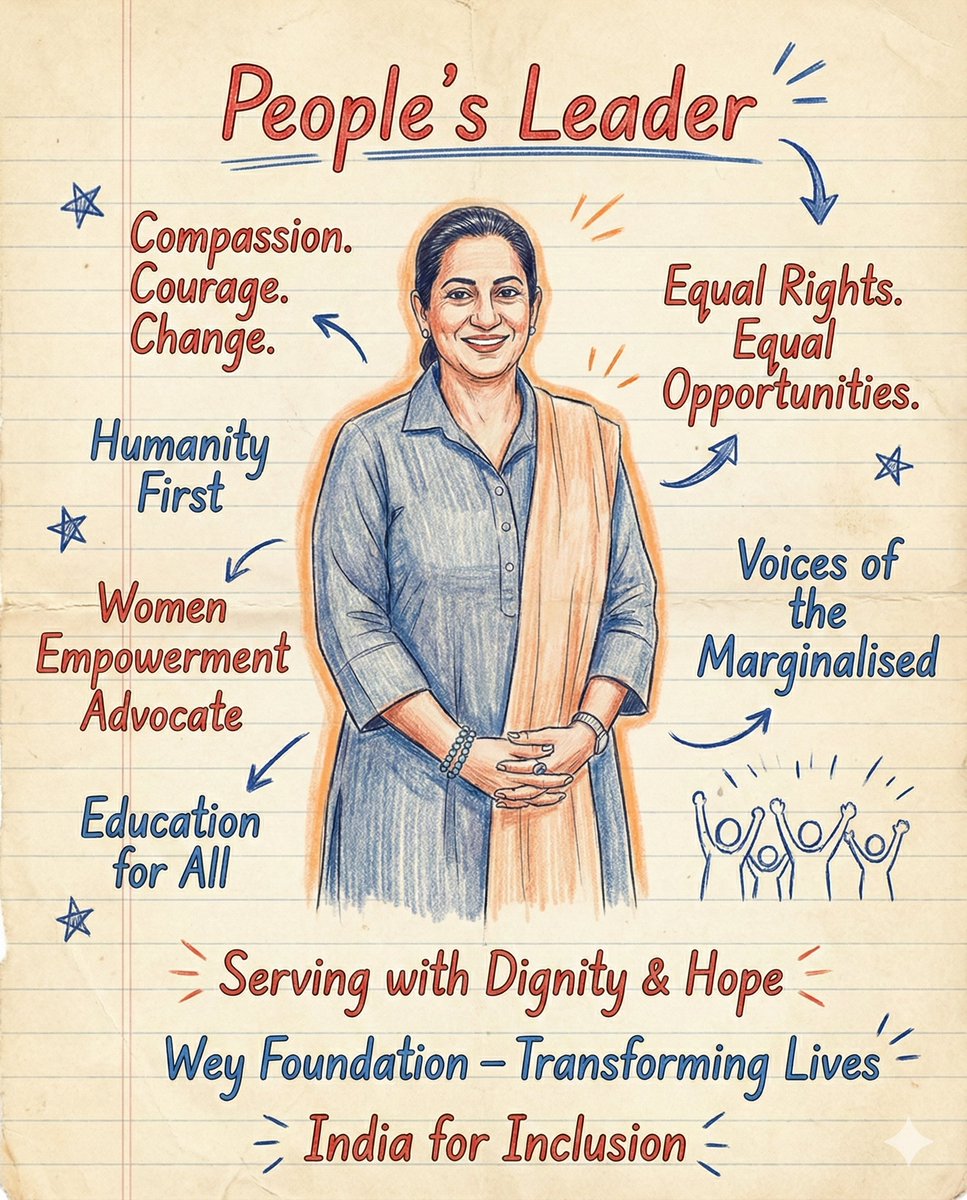 People's Leader
Compassion.
Courage.
Change.
Equal Rights.
Equal
Opportunities.
Humanity
First
Voices of
the
Marginalised
Women
Empowerment
Advocate
Education
for All
Serving with Dignity & Hope
Wey Foundation – Transforming Lives
India for Inclusion